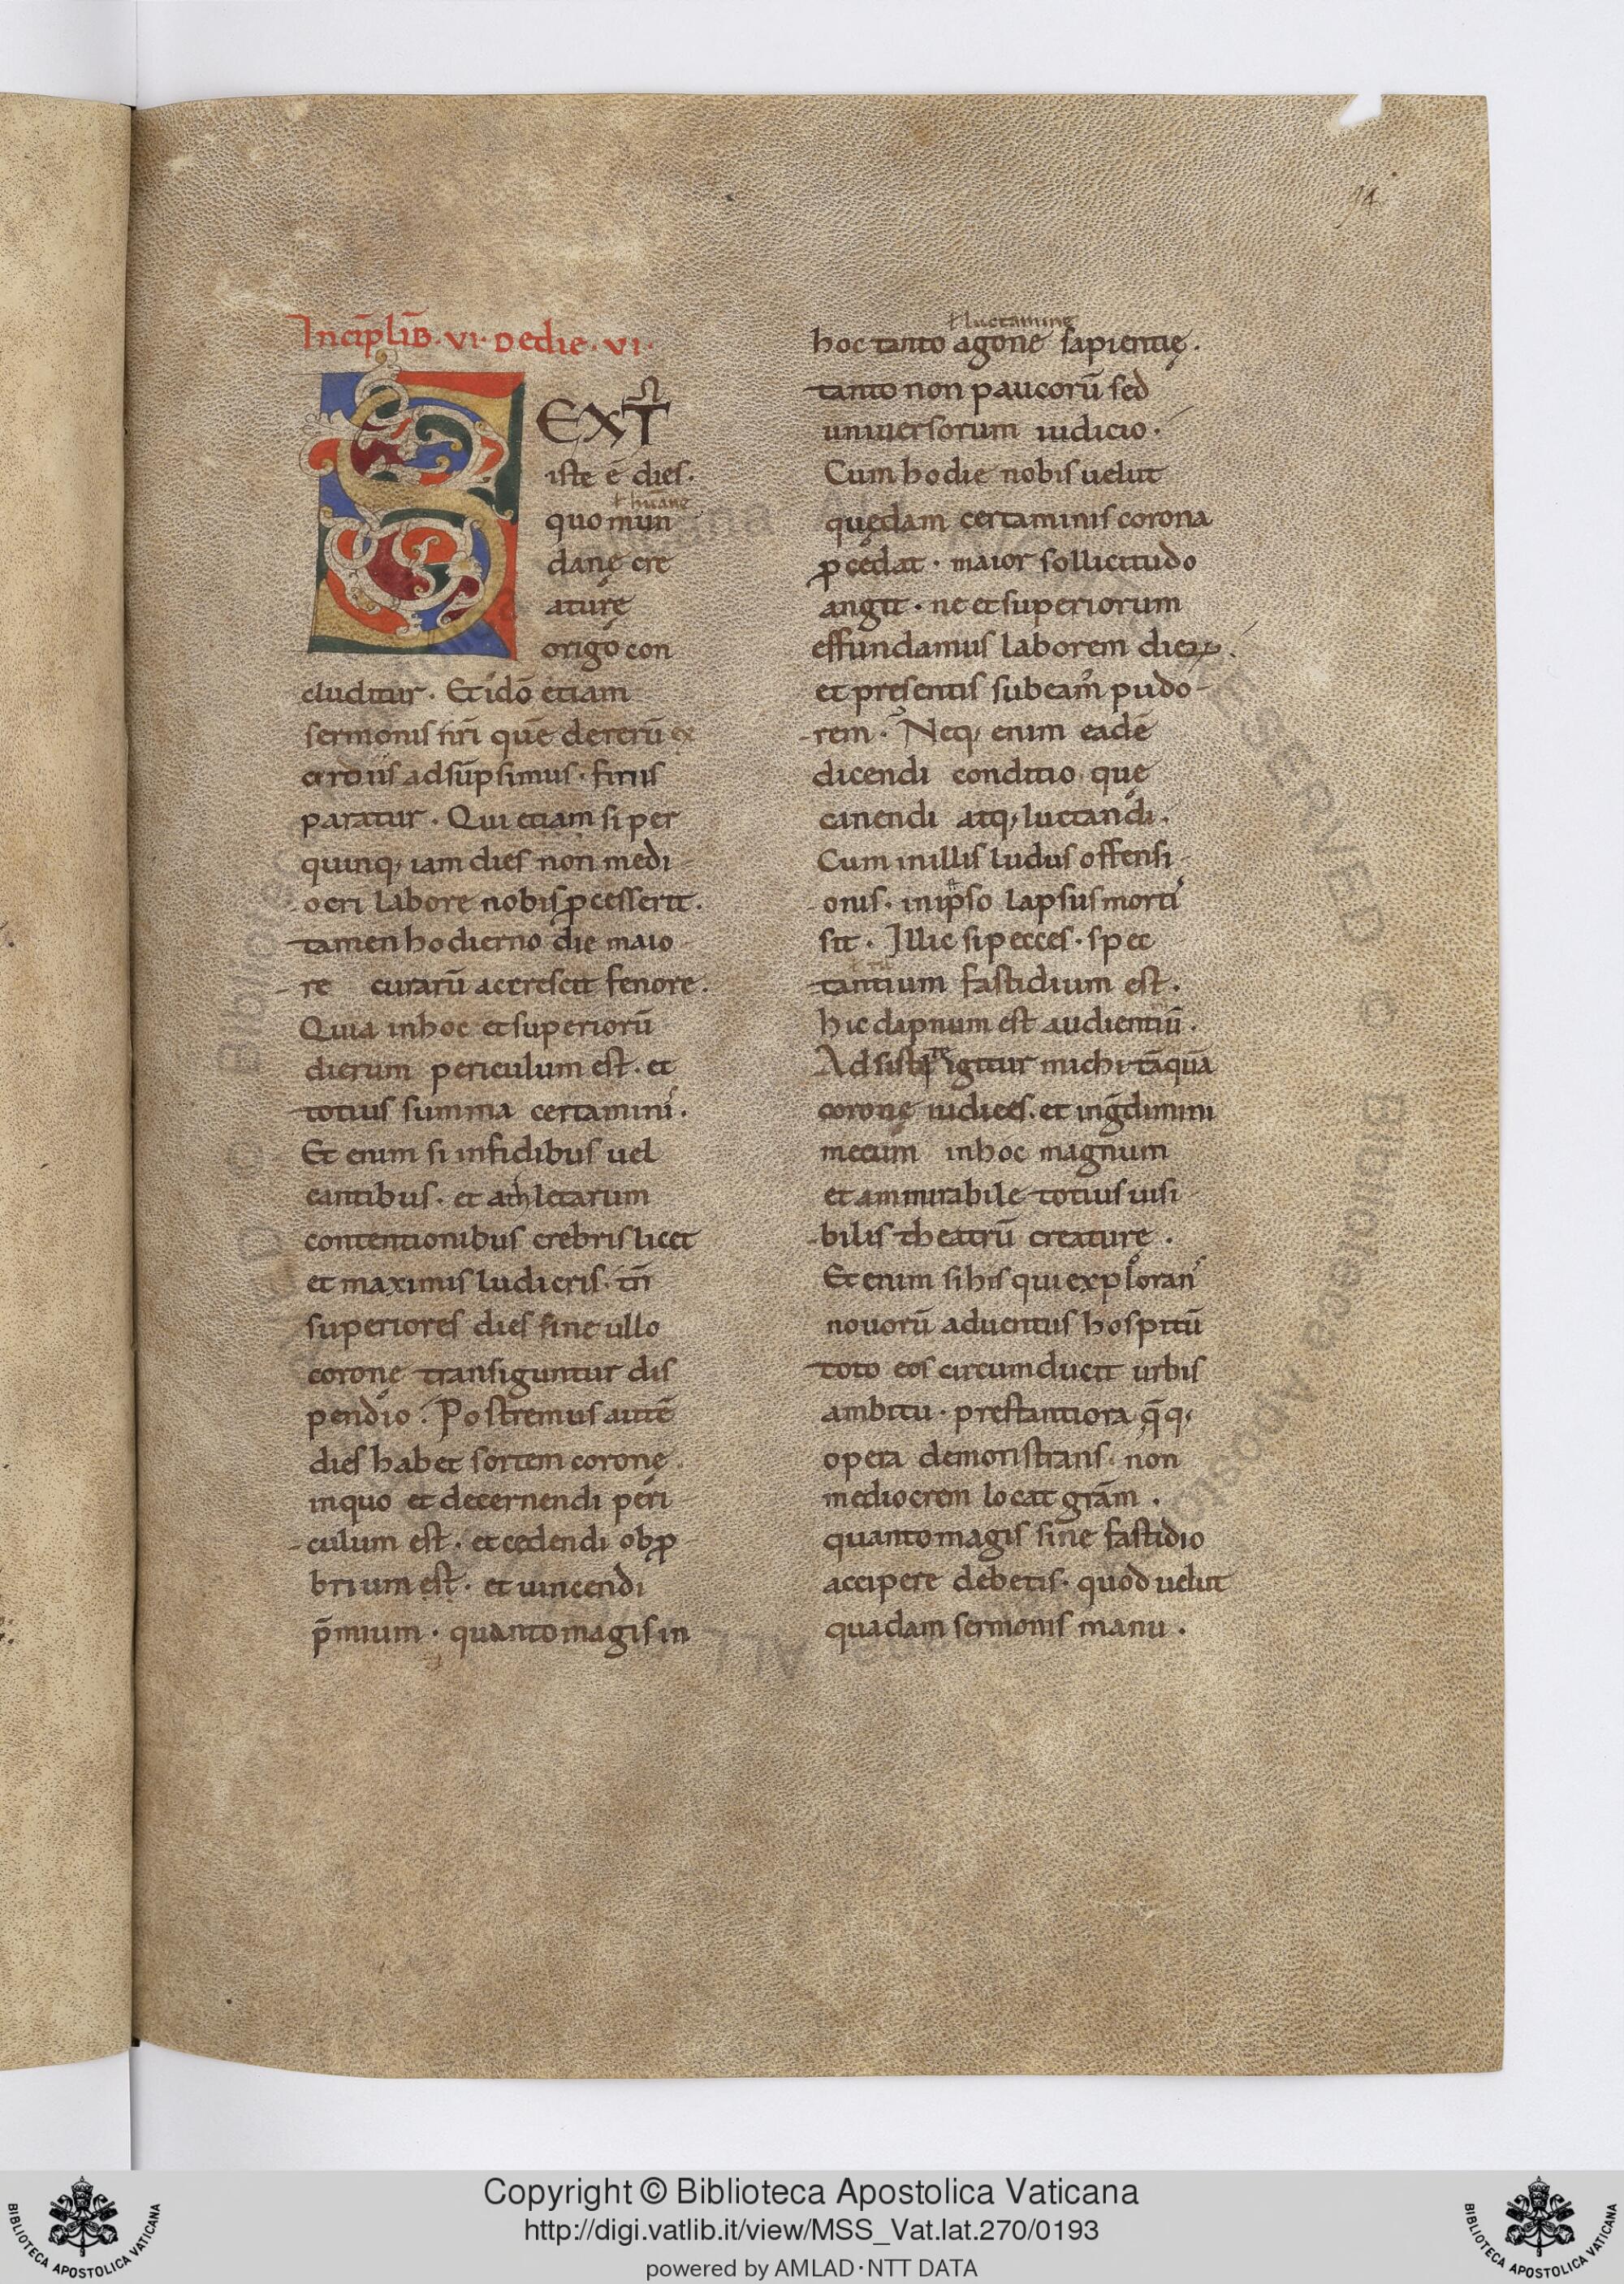 94
Incip̄ lib̄. vi. De die. vi.
SEXT᷒
iste ē dies.
ł humanę
quo mun
danę cre
aturę
origo con
cluditur. Et idō etiam
sermonis nr̄i quē de rerū ex
ordiis adsūpsimus. finis
paratur. Qui etiam si per
quinq; iam dies non medi-
-ocri labore nobis ꝓcesserit.
tamen hodierno die maio-
-re curarū acerescit fenore.
Quia in hoc et superiorū
dierum periculum est. et
totius summa certamini᷒.
Et enim si in fidibus uel
cantibus. et athletarum
contentionibus crebris licet
et maximis ludicris. tn̄
superiores dies sine ullo
coronę transiguntur dis
pendio. Postremus autē
dies habet sortem coronę.
in quo et decernendi peri-
-culum est. et cedendi obꝓ-
brium est. et uincendi
p̄mium. quanto magis in
ł luctamine
hoc tanto agone sapientię.
tanto non paucorū sed
uniuersorum iudicio.
Cum hodie nobis uelut
quędam certaminis corona
ꝓcedat. maior sollicitudo
angit. ne et superiorum
effundamus laborem dieꝝ.
et presentis subeam᷒ pudo-
-rem. Neq; enim eadē
dicendi conditio quę
canendi atq; luctandi.
Cum in illis ludus offensi-
-onis. in ipso lapsus morti᷒
sit. Illic si pecces. spec
tantium fastidium est.
hic dapnum est audientiū.
Adsistite igitur michi tāquā
coronę iudices. et ingredimini
mecum in hoc magnum
et ammirabile totius uisi-
-bilis theatrū creaturę.
Et enim si his qui exploran᷒
nouorū aduentus hospitū
toto eos circumducit urbis
ambitu. prestantiora q̄q;
opera demonstrans. non
mediocrem locat grām.
quanto magis sine fastidio
accipere debetis. quod uelut
quadam sermonis manu.
Copyright © Biblioteca Apostolica Vaticana
http://digi.vatlib.it/view/MSS_Vat.lat.270/0193
powered by AMLAD·NTT DATA
BIBLIOTECA APOSTOLICA VATICANA
BIBLIOTECA APOSTOLICA VATICANA